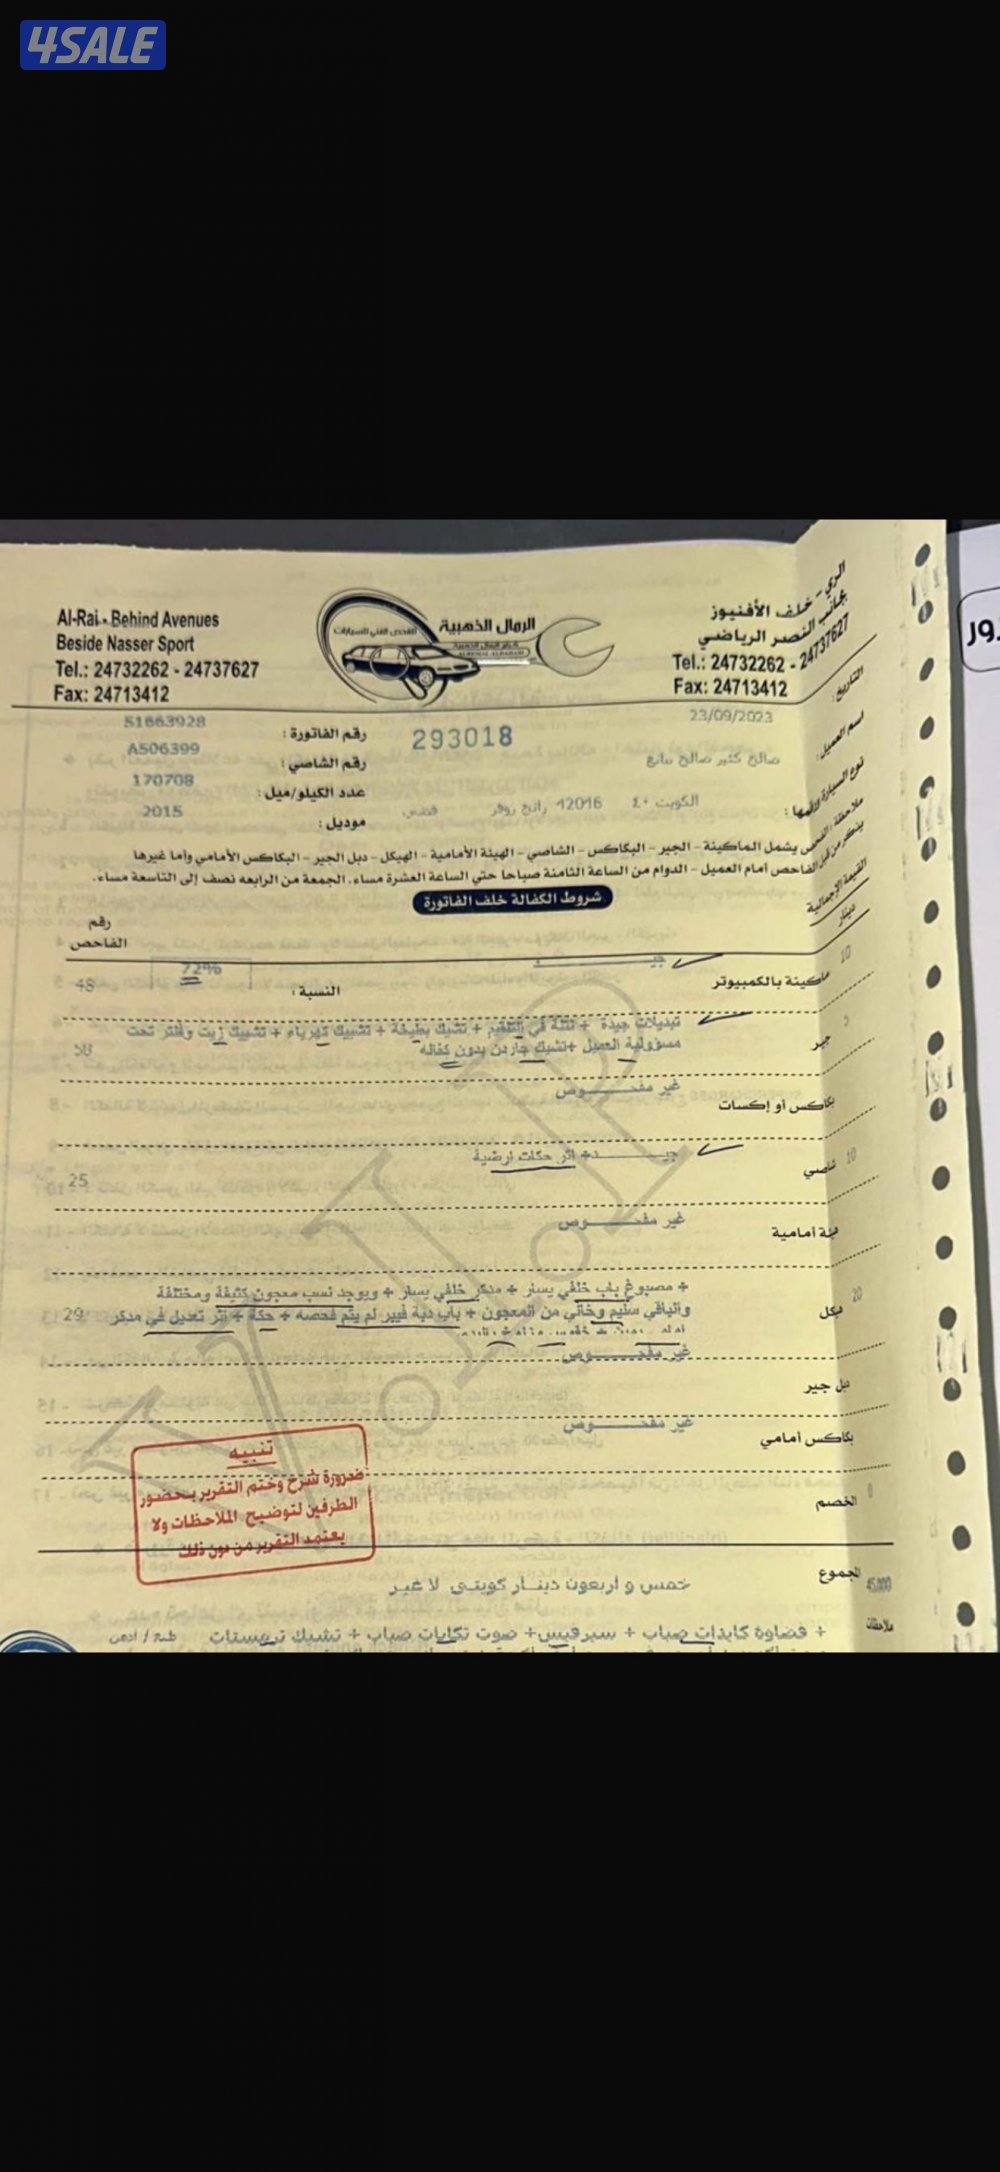 4SALE
Al-Rai - Behind Avenues
Beside Nasser Sport
Tel.: 24732262 - 24737627
Fax: 24713412
الرمال الذهبية
الفحص الفني للسيارات
الري - خلف الأفنيوز
بجانب النصر الرياضي
Tel.: 24732262 - 24737627
Fax: 24713412
التاريخ:
23/09/2023
293018
رقم الفاتورة :
51663928
اسم العميل:
رقم الشاصي :
A506399
عدد الكيلو/ميل :
170708
نوع السيارة ورقمها :
الكويت ٤٠ 42016 رانج روفر فضي
موديل :
2015
ملاحظة : الفحص يشمل الماكينة - الجير - البكاكس - الشاصي - الهيئة الأمامية - الهيكل - دبل الجير - البكاكس الأمامي وأما غيرها
الفاحص أمام العميل - الدوام من الساعة الثامنة صباحا حتى الساعة العشرة مساء. الجمعة من الرابعه نصف إلى التاسعة مساء.
القيمة الإجمالية
دينار
شروط الكفالة خلف الفاتورة
رقم
الفاحص
10
ماكينة بالكمبيوتر
النسبة :
72%
48
5
جير
تبديلات جيدة + نتلة في التقييم + تشيك بطيخة + تشييك كهرباء + تشييك زيت وفلتر تحت
مسؤولية العميل +تشيك جاردن بدون كفاله
بكاكس أو إكسات
غير مفحـوص
10
شاصي
جيـد+ اثر حكات ارضية
25
هيئة أمامية
غير مفحـوص
20
هيكل
+ مصبوغ باب خلفي يسار + مدكر خلفي يسار + ويوجد نسب معجون كثيفة ومختلفة
والباقي سليم وخالي من المعجون + باب دبة فيبر لم يتم فحصه + حكة + اثر تعديل في مدكر
29
دبل جير
غير مفحـوص
بكاكس أمامي
غير مفحـوص
0
الخصم
تنبيه
ضرورة شرح وختم التقرير بحضور
الطرفين لتوضيح الملاحظات ولا
يعتمد التقرير من دون ذلك
المجموع
45.000
خمس و اربعون دينـار كويتـي لا غير
ملاحظات
+ سيرفيس+ صوت تكايات صباب + تشيك ترمستات
V.I.P